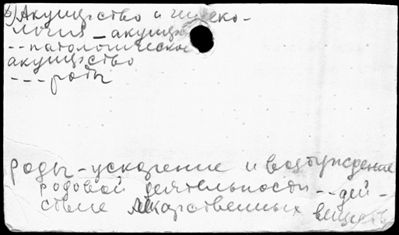 б) Акушерство и гинеко-
логия - акушерс
-- патологическое
акушерство
--- роды
роды - ускорение и возбуждение
родовой деятельности -- дей-
ствие лекарственных веществ